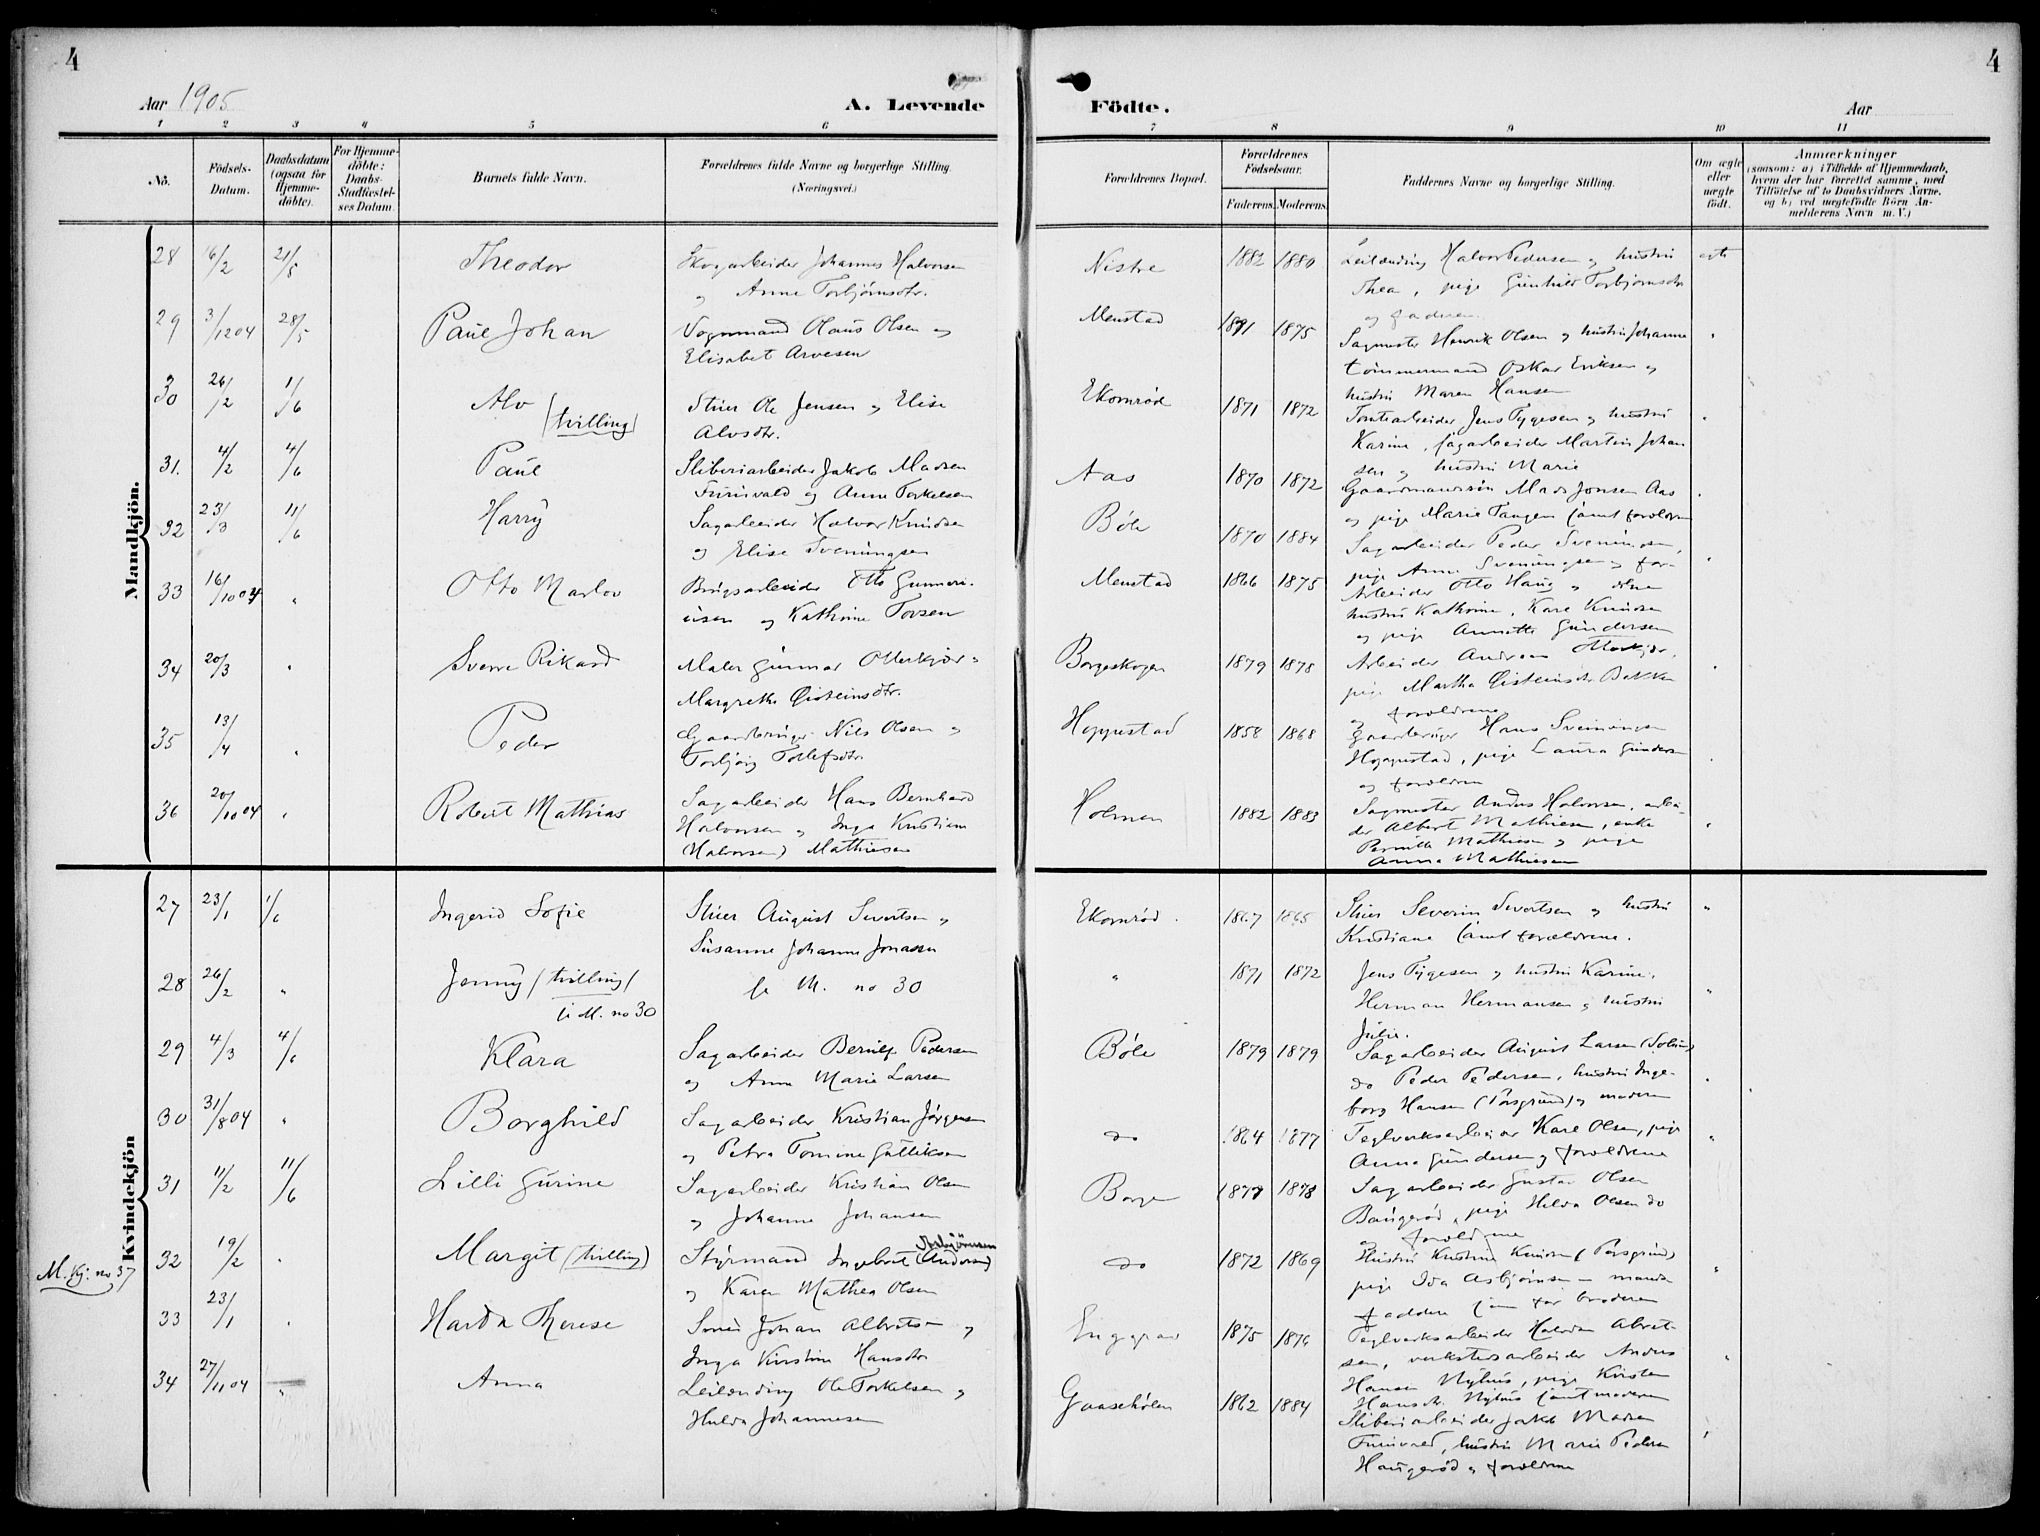 4
4
Aar 1905
A. Levende
Födte.
Aar
1 2 3 4 5 6 7 8 9 10 11
Nö.
Födsels-
Datum.
Daabsdatum
(ogsaa for
Hjemme-
döbte).
For Hjemme-
döbte:
Daabs-
Stadfæstel-
ses Datum.
Barnets fulde Navn.
Forældrenes fulde Navne og borgerlige Stilling.
(Næringsvei.)
Forældrenes Bopæl.
Forældrenes
Födselsaar.
Faderens. Moderens.
Faddernes Navne og borgerlige Stilling.
Om ægte
eller
uægte
födt.
Anmærkninger
(saasom: a) i Tilfælde af Hjemmedaab,
hvem der har forrettet samme, med
Tilföielse af to Daabsvidners Navne,
og b) ved uægtefödte Börn An-
melderens Navn m. V.)
Mandkjön.
28 16/2 21/5 Theodor Skogarbeider Johannes Halvorsen Nistre 1882 1880 Leilænding Halvor Pedersen og hustru ægte
og Anne Torbjørnsdtr. Thea, pige Gunhild Torbjørnsdtr
og faderen.
29 3/12 04 28/5 Paul Johan Vognmand Olaus Olsen og Menstad 1875 Sagmester Henrik Olsen og hustru Johanne "
Elisabet Arvesen tømmermand Oskar Eriksen og
hustru Maren Hansen
30 26/2 1/6 Alv (tvilling) Stuer Ole Jensen og Elise Ekornrød 1871 1872 Tomtearbeider Jens Tygesen og hustru "
Alvsdtr. Karine, sagarbeider Martin Johan
sen og hustru Marie
31. 4/2 4/6 Paul Sliberiarbeider Jakob Madsen Aas 1870 1872 Gaardmandssøn Mads Jonsen Aas "
Furuvald og Anne Torkelsen og pige Marie Tangen samt forældrene
32 23/3 11/6 Harry Sagarbeider Halvor Knudsen Böle 1870 1884 Sagarbeider Peder Sveningsen, "
og Elise Sveningsen pige Anne Sveningsen og for-
33 16/10 04 " Otto Marlov Brugsarbeider Otto Gunneri- Menstad 1866 1875 Arbeider Otto Haug og
usen og Kathrine Torsen hustru Kathrine, Karl Knudsen
og pige Annette Gundersen
34 20/3 " Sverre Rikard Maler Gunnar Otterkjær Borgeskogen 1879 1878 Arbeider Andreas Otterkjær, "
Margrethe Øisteinsdtr. pige Martha Øisteinsdtr Bakken
og forældrene
35 13/4 " Peder Gaardbruger Nils Olsen og Hoppestad 1858 1868 Gaardbruger Hans Sveinungsen
Torbjørg Tollefsdtr. Hoppestad, pige Laura Gunders
og forældrene "
36 20/10 04 " Robert Mathias Sagarbeider Hans Bernhard Holman 1882 1883 Sagmester Anders Halvorsen, arbei-
Halvorsen og Inga Kristiane der Albert Mathiesen, enke "
(Halvorsen) Mathiesen Pernille Mathiesen og pige
Anna Mathiesen
Kvindekjön
27 23/1 1/6 Ingerid Sofie Stuer August Sivertsen og Ekornrød. 1867 1865 Stuer Severin Sivertsen og hustru "
Susanne Johanne Jonassen Kristiane samt forældrene.
28 26/2 " Jenny (tvilling) se M. no 30 " 1871 1872 Jens Tygesen og hustru Karine,
(i M. no 30 Herman Hermansen og hustru "
Julie.
29 4/3 4/6 Klara Sagarbeider Bernt Pedersen Böle 1879 1879 Sagarbeider August Larsen (Solum)
og Anna Marie Larsen do Peder Pedersen, hustru Inge- "
borg Hansen (Porsgrund) og moderen
30 31/8 04 " Borghild Sagarbeider Kristian Jörgensen do 1864 1877 Teglverksarbeider Karl Olsen, pige "
og Petra Tomine Gulliksen Anna Gundersen og forældrene
31 11/2 11/6 Lilli Gurine Sagarbeider Kristian Olsen Borge 1877 1878 Sagarbeider Gustav Olsen
og Johanne Johansen Baugerød, pige Hilda Olsen do
og forældrene
M. Kj. no 37
32 19/2 " Margit (tvilling) Styrmand Ingebret (Andersen) Asbjörnsen do 1872 1869 Hustru Kristine Knudsen (Porsgrund)
og Karen Mathea Olsen pige Ida Asbjörnsen – mands "
faddere som for broderen
33 23/1 " Harda Therese Johan Albrets- og Enggrav 1875 Teglverksarbeider Halvdan Abret-
Inga Kirstine Hansdtr sen, verkstedsarbeider Anders "
Hansen Nyhus, pige Kirsten
Hansdtr. Nyhus samt moderen
34 27/11 04 " Anna Leilænding Ole Torkelsen og Gaaseholen 1862 1884 Sliberiarbeider Jakob Madsen
Hulda Johannesen Furuvald, hustru Marie Pedersen "
Haugerød og forældrene